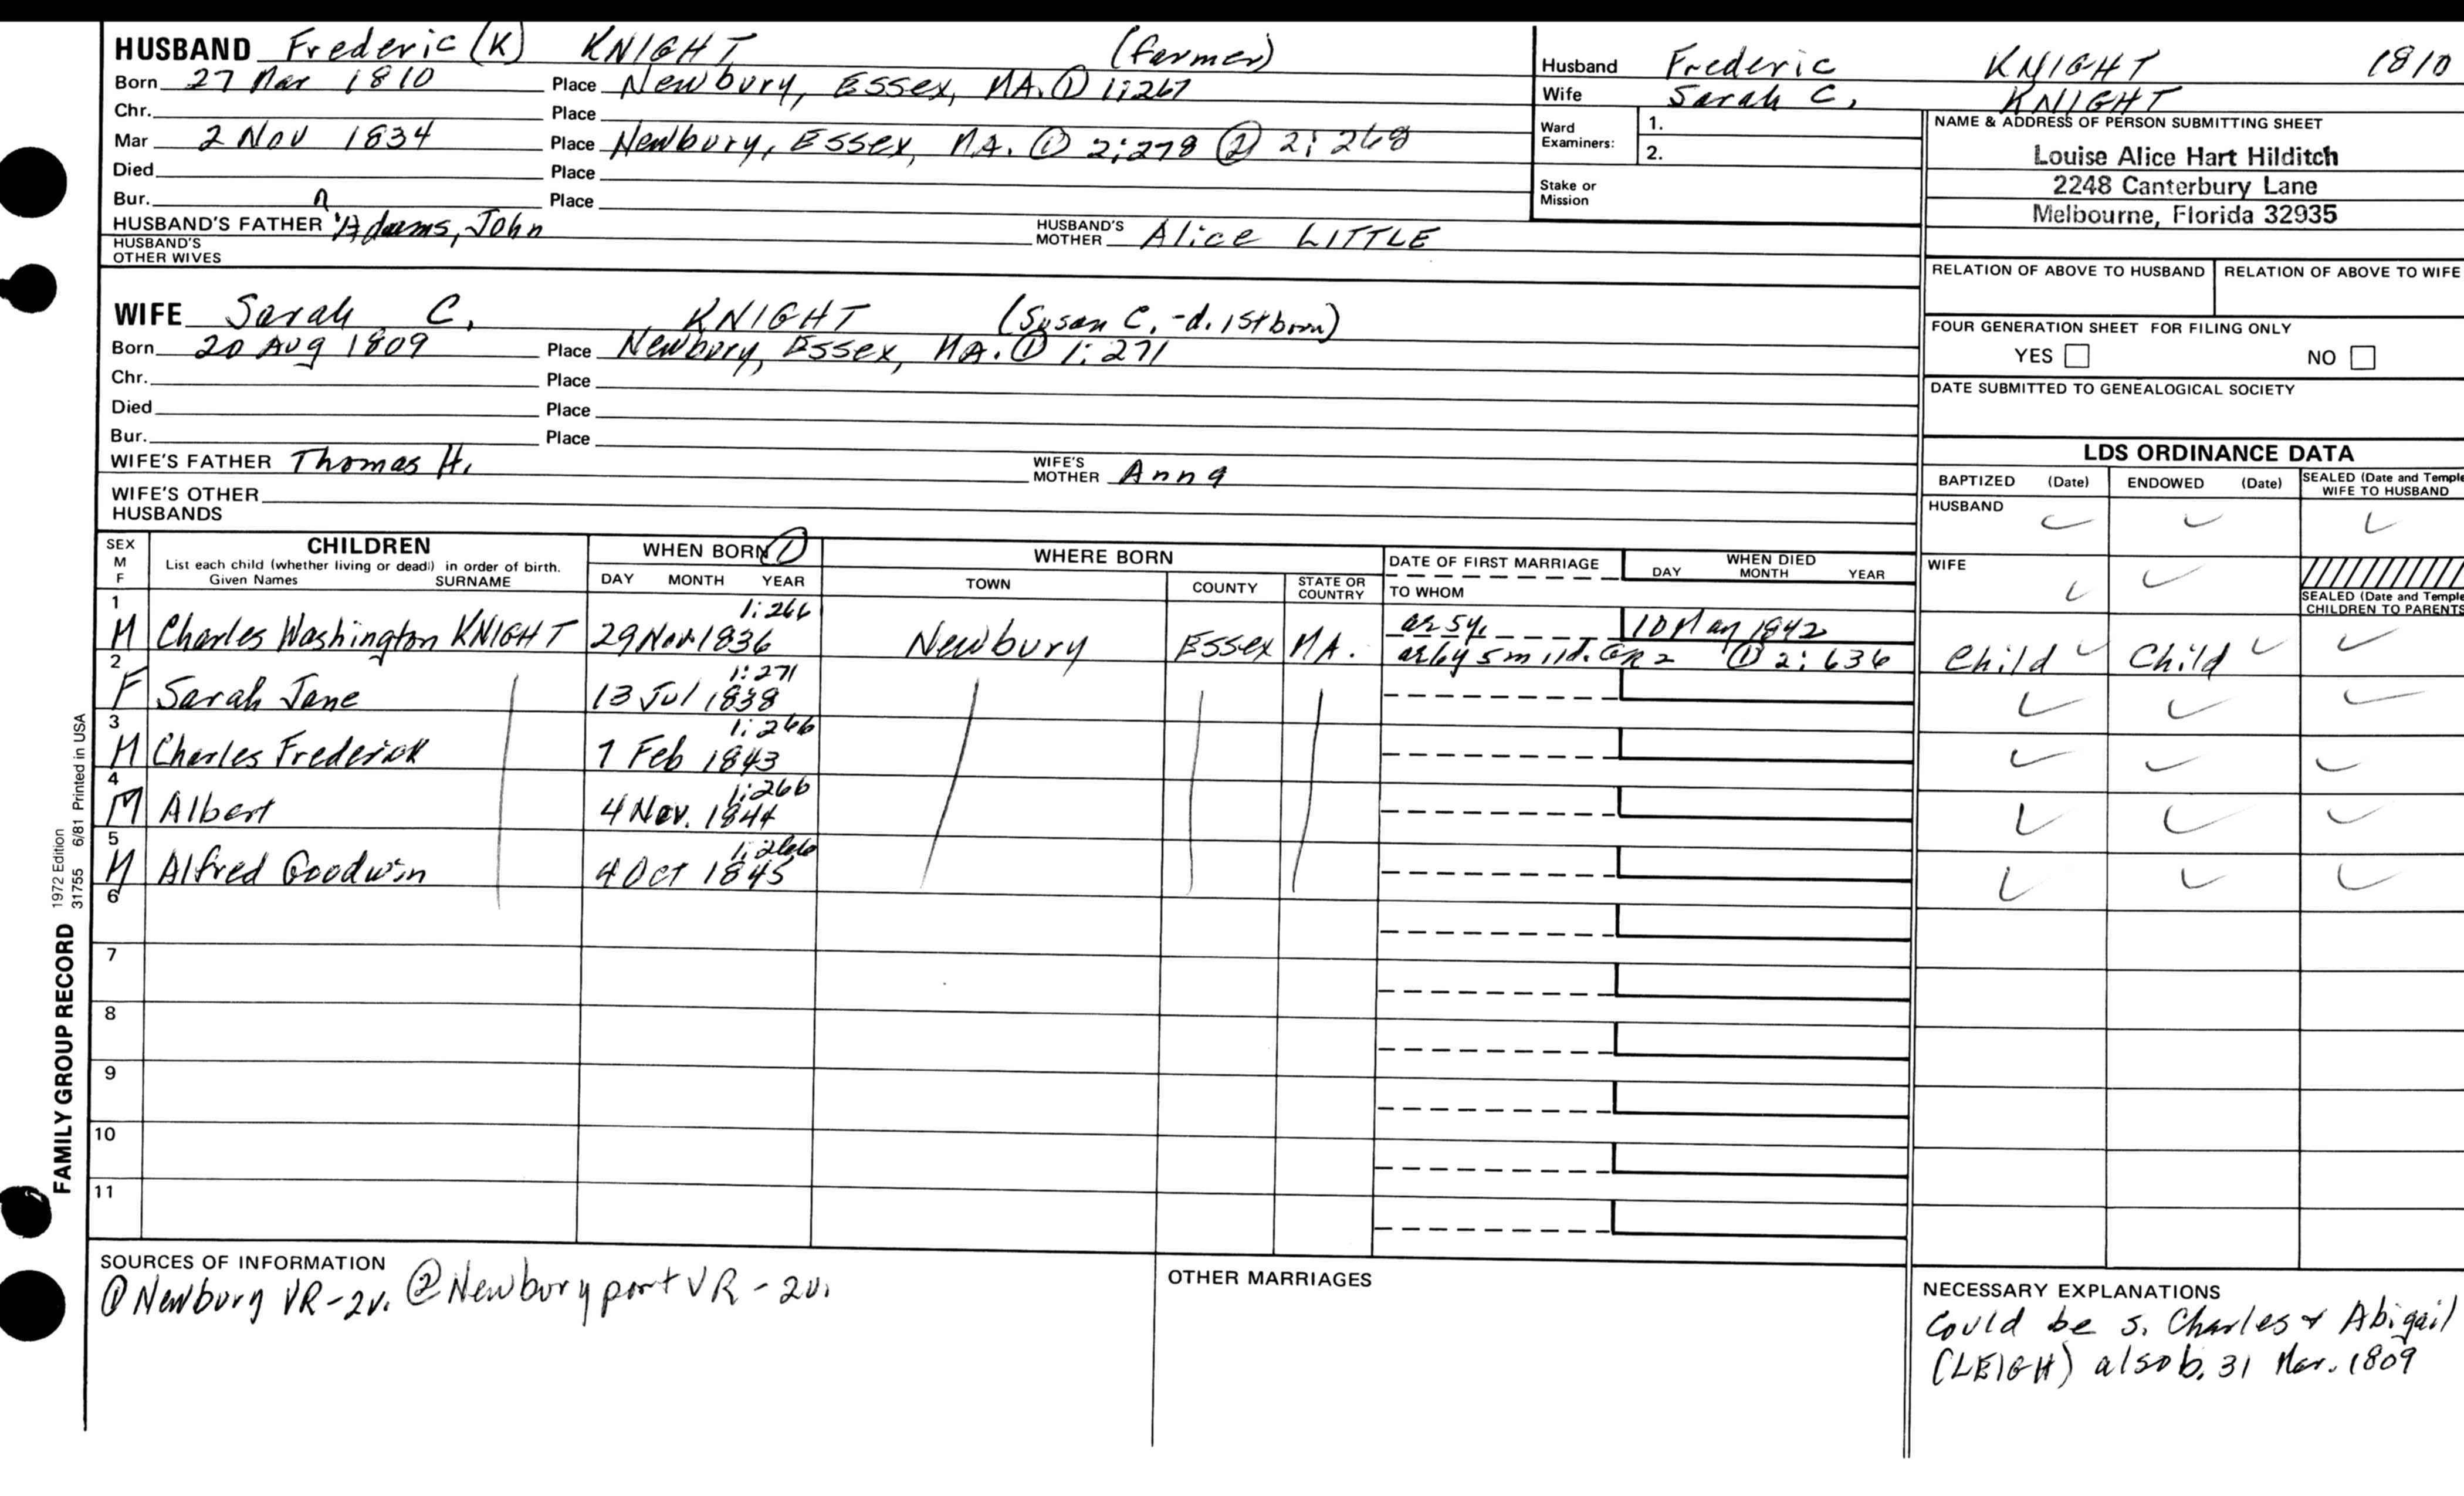 HUSBAND Frederic (K) KNIGHT (farmer)
Born 27 Mar 1810 Place Newbury, Essex, MA. ① 1:267
Chr. Place
Mar 2 Nov 1834 Place Newbury, Essex, MA. ① 2:278 ② 2:268
Died Place
Bur. Place
HUSBAND'S FATHER Adams, John HUSBAND'S MOTHER Alice LITTLE
HUSBAND'S OTHER WIVES
WIFE Sarah C. KNIGHT (Susan C. -d. 1st born)
Born 20 Aug 1809 Place Newbury, Essex, MA. ① 1:271
Chr. Place
Died Place
Bur. Place
WIFE'S FATHER Thomas H. WIFE'S MOTHER Anna
WIFE'S OTHER HUSBANDS
Husband Frederic KNIGHT 1810
Wife Sarah C. KNIGHT
Ward Examiners: 1.
2.
Stake or Mission
NAME & ADDRESS OF PERSON SUBMITTING SHEET
Louise Alice Hart Hilditch
2248 Canterbury Lane
Melbourne, Florida 32935
RELATION OF ABOVE TO HUSBAND RELATION OF ABOVE TO WIFE
FOUR GENERATION SHEET FOR FILING ONLY
YES NO
DATE SUBMITTED TO GENEALOGICAL SOCIETY
LDS ORDINANCE DATA
BAPTIZED (Date) ENDOWED (Date) SEALED (Date and Temple) WIFE TO HUSBAND
HUSBAND ✓ ✓ ✓
WIFE ✓ ✓
SEALED (Date and Temple) CHILDREN TO PARENTS
SEX M F CHILDREN WHEN BORN ① WHERE BORN DATE OF FIRST MARRIAGE WHEN DIED
List each child (whether living or dead) in order of birth.
Given Names SURNAME DAY MONTH YEAR TOWN COUNTY STATE OR COUNTRY TO WHOM DAY MONTH YEAR
1 1:266 a2 5y. 10 May 1842
M Charles Washington KNIGHT 29 Nov 1836 Newbury Essex MA. 5m 11d. GR2 ① 2:636 Child ✓ Child ✓ ✓
2 1:271
F Sarah Jane 13 Jul 1838 ✓ ✓ ✓
3 1:266
M Charles Frederick 7 Feb 1843 ✓ ✓ ✓
4 1:266
M Albert 4 Nov. 1844 ✓ ✓ ✓
5 1:266
M Alfred Goodwin 4 Oct 1845 ✓ ✓ ✓
6
7
8
9
10
11
SOURCES OF INFORMATION
① Newbury VR-2v. ② Newburyport VR-2v.
OTHER MARRIAGES
NECESSARY EXPLANATIONS
Could be s. Charles & Abigail
(LEIGH) also b. 31 Mar. 1809
FAMILY GROUP RECORD 1972 Edition
31755 6/81 Printed in USA